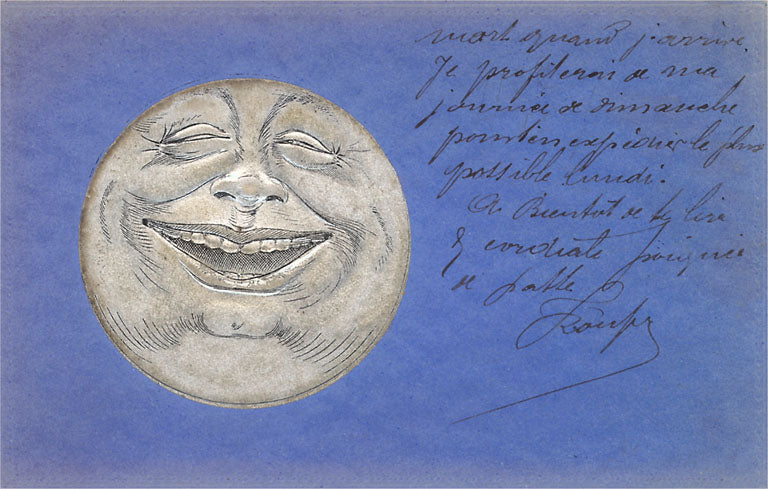 mort quand j'arrive.
Je profiterai de ma
journée de dimanche
pour t'en expédier le plus
possible lundi.
A Bientôt de te lire
& cordiale poignée
de patte